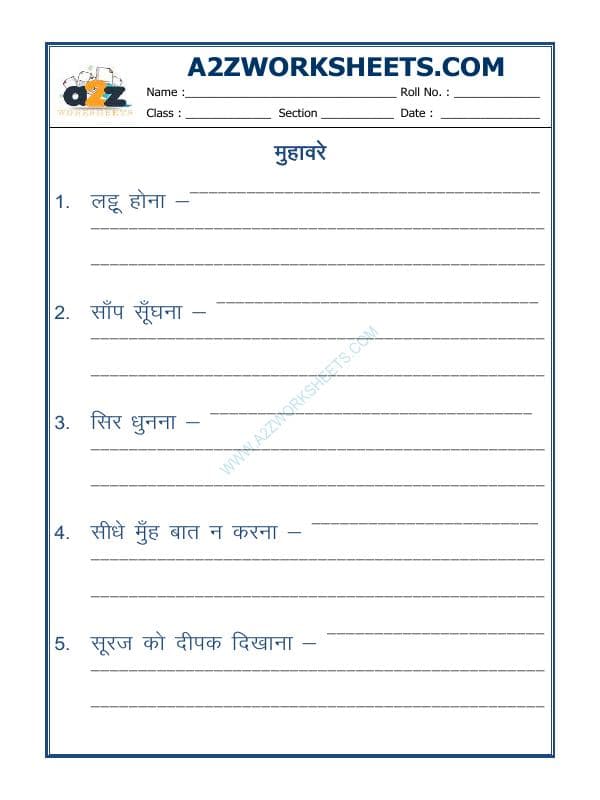 A2ZWORKSHEETS.COM
a2z
WORKSHEETS
Name :________________________________ Roll No. : _____________
Class : _____________ Section ___________ Date : _______________
मुहावरे
1. लट्टू होना –
2. साँप सूँघना –
3. सिर धुनना –
4. सीधे मुँह बात न करना –
5. सूरज को दीपक दिखाना –
WWW.A2ZWORKSHEETS.COM